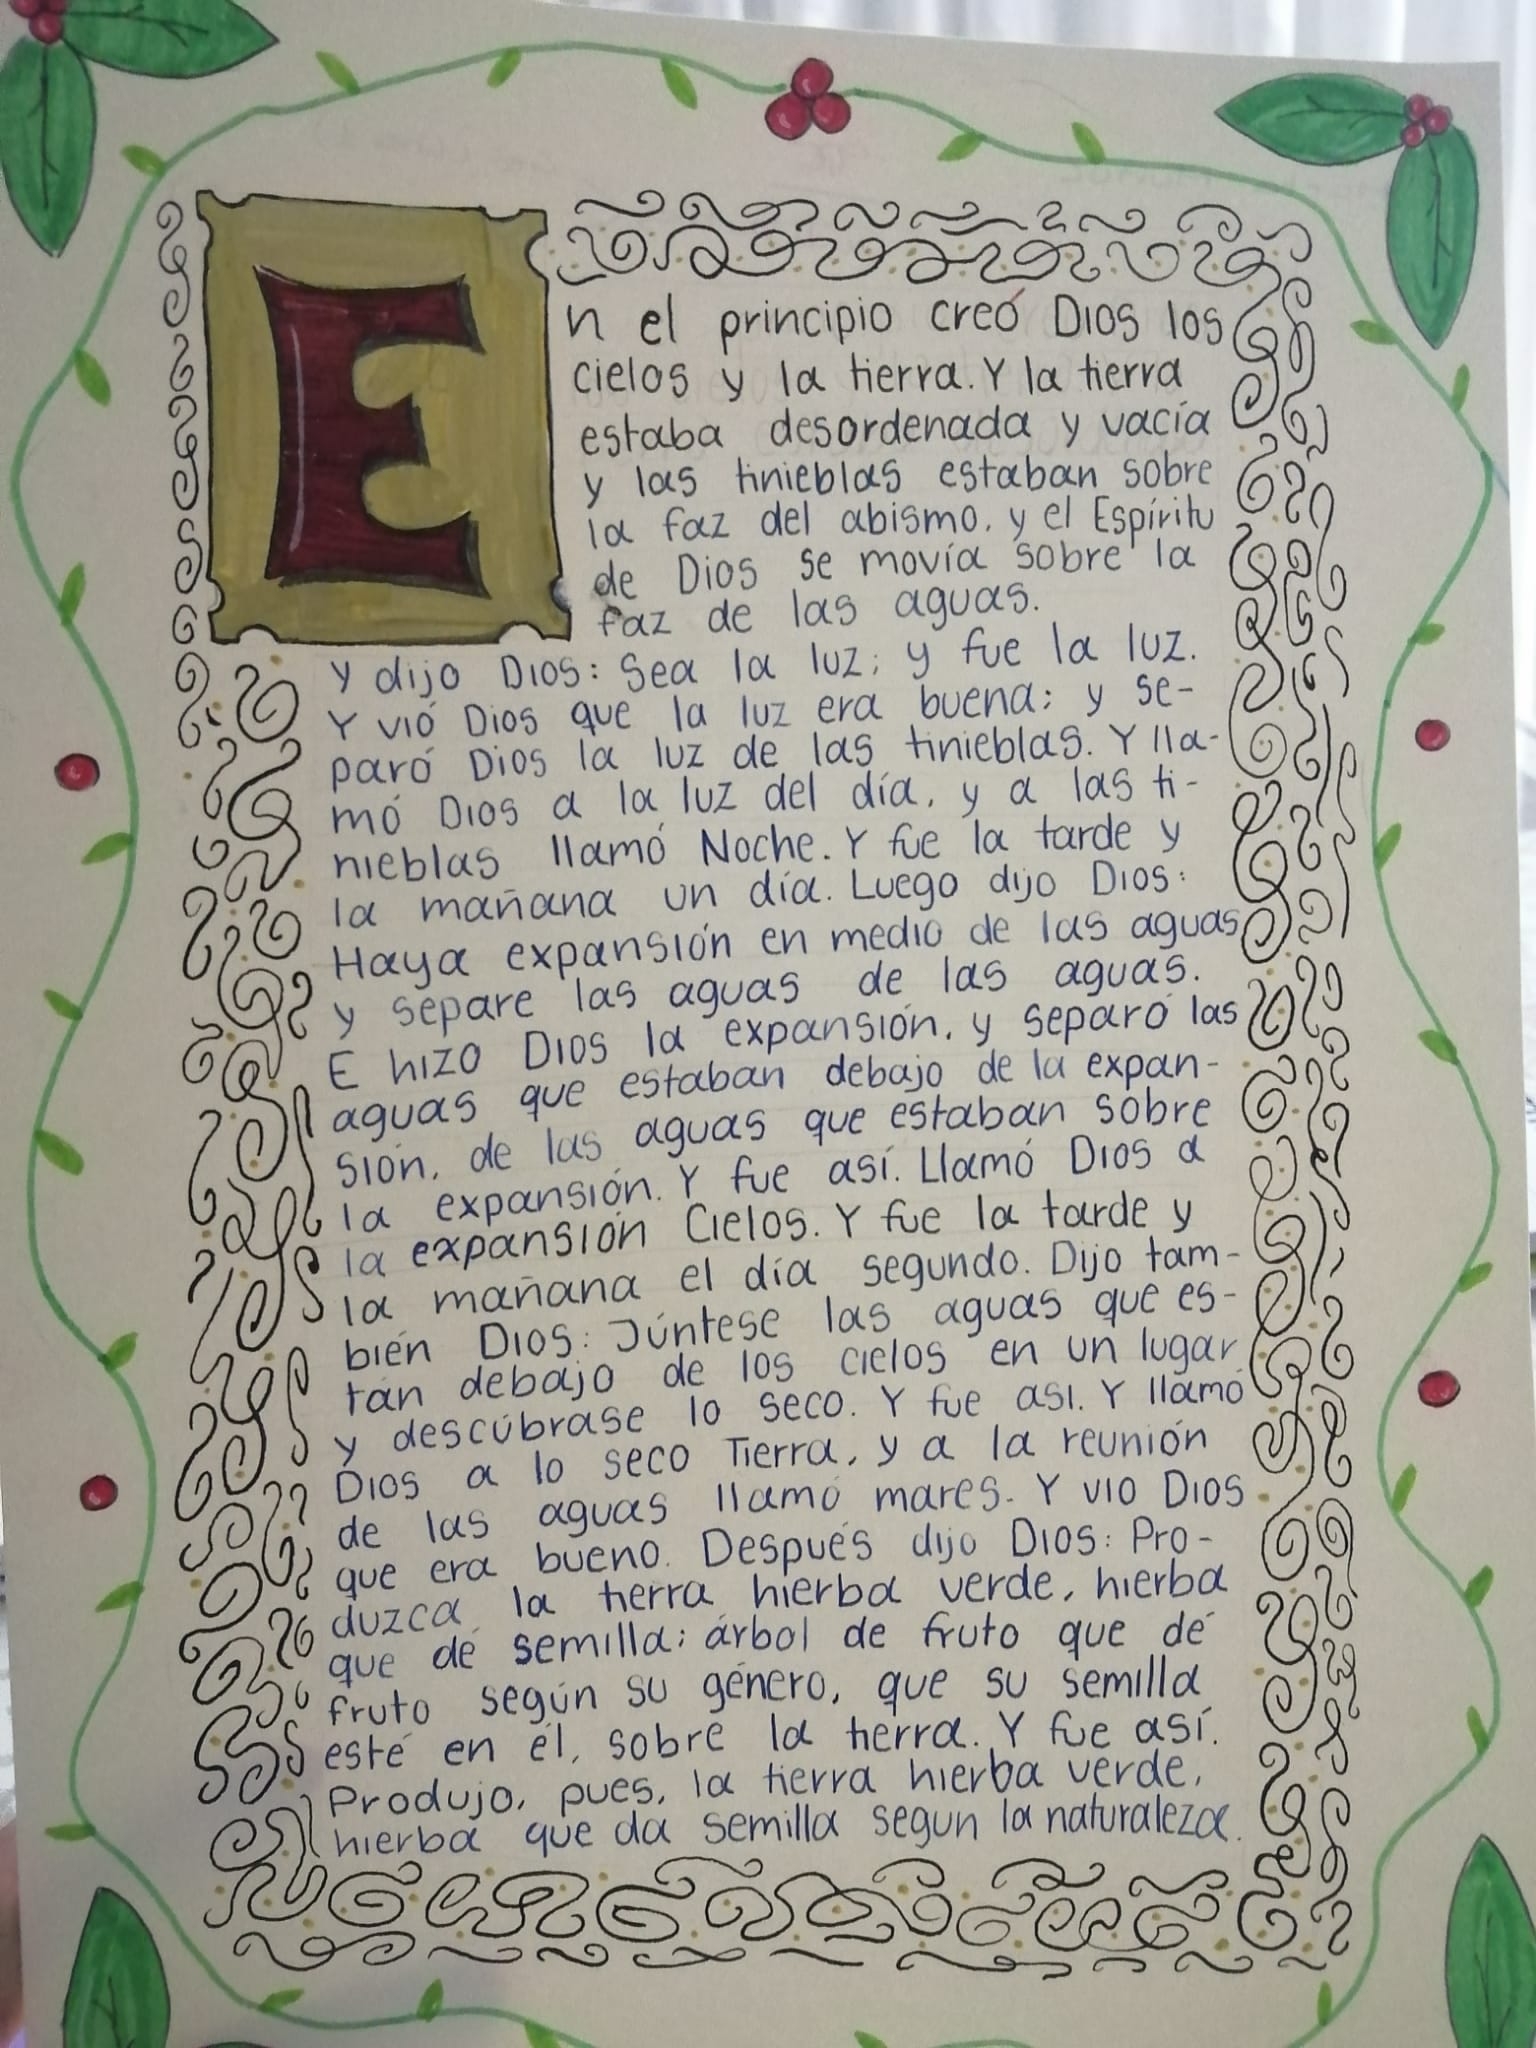 En el principio creó Dios los
cielos y la tierra. Y la tierra
estaba desordenada y vacía
y las tinieblas estaban sobre
la faz del abismo, y el Espíritu
de Dios se movía sobre la
faz de las aguas.
Y dijo Dios: Sea la luz; y fue la luz.
Y vió Dios que la luz era buena; y se-
paró Dios la luz de las tinieblas. Y lla-
mó Dios a la luz del día, y a las ti-
nieblas llamó Noche. Y fue la tarde y
la mañana un día. Luego dijo Dios:
Haya expansión en medio de las aguas
y separe las aguas de las aguas.
E hizo Dios la expansión, y separó las
aguas que estaban debajo de la expan-
sión, de las aguas que estaban sobre
la expansión. Y fue así. Llamó Dios a
la expansión Cielos. Y fue la tarde y
la mañana el día segundo. Dijo tam-
bién Dios: Júntese las aguas que es-
tán debajo de los cielos en un lugar
y descúbrase lo seco. Y fue asi. Y llamó
Dios a lo seco Tierra, y a la reunión
de las aguas llamó mares. Y vio Dios
que era bueno. Después dijo Dios: Pro-
duzca la tierra hierba verde, hierba
que dé semilla; árbol de fruto que dé
fruto según su género, que su semilla
esté en él, sobre la tierra. Y fue así.
Produjo, pues, la tierra hierba verde,
hierba que da semilla segun la naturaleza.